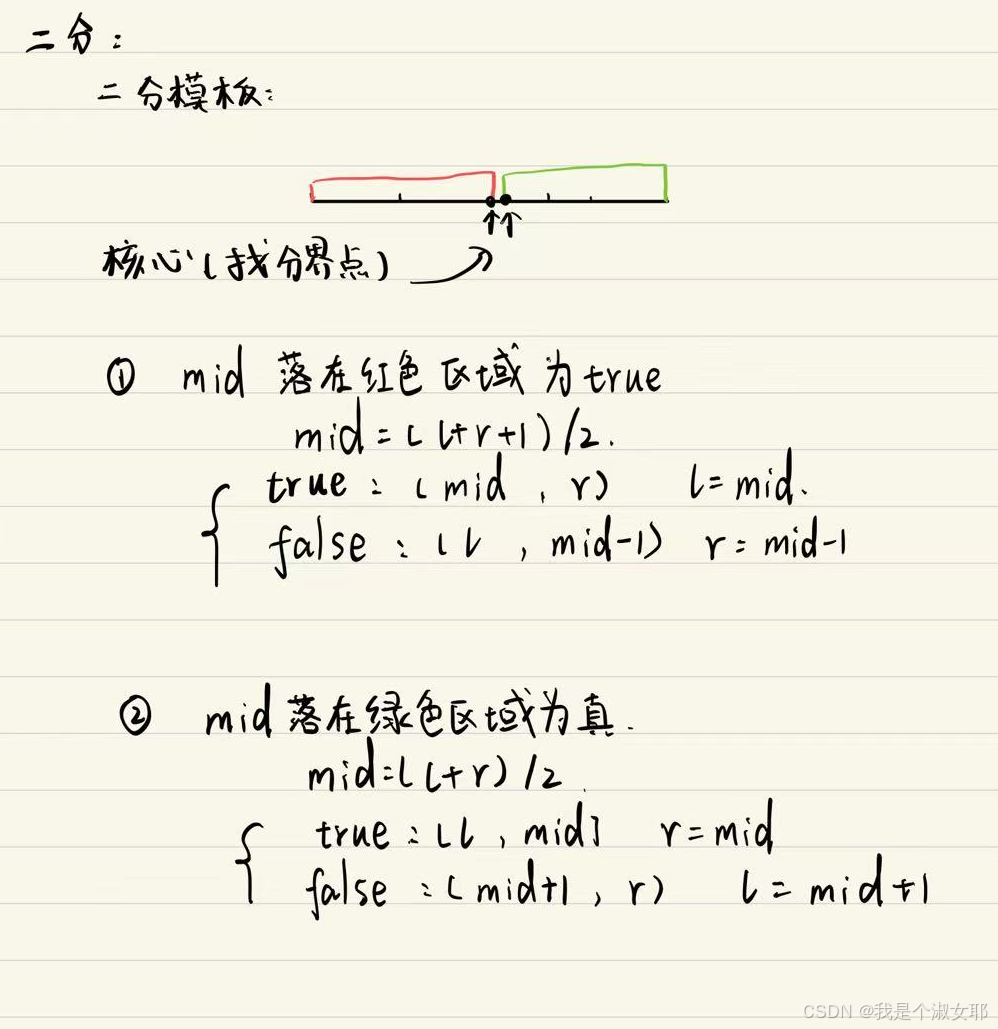 二分：
二分模板：
核心(找分界点)
① mid 落在红色区域为true
mid=(l+r+1)/2.
true：(mid，r) l=mid.
false：(l，mid-1) r=mid-1
② mid落在绿色区域为真.
mid=(l+r)/2.
true：[l，mid] r=mid
false：(mid+1，r) l=mid+1
CSDN @我是个淑女耶